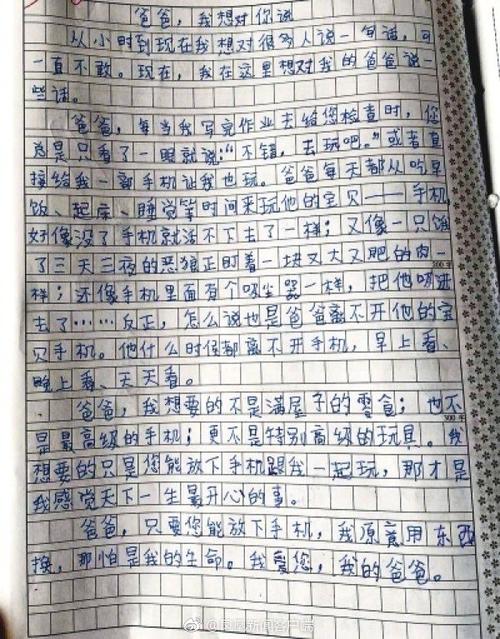 爸爸，我想对你说
从小时到现在我想对很多人说一句话，可
一直不敢。现在，我在这里想对我的爸爸说一
些话。
爸爸，每当我写完作业去给您检查时，您
总是只看了一眼就说：“不错，去玩吧。”或者直
接给我一部手机让我也玩。爸爸每天都从吃早
饭、起床、睡觉等时间来玩他的宝贝——手机
好像没了手机就活不下去了一样；又像一只饿
了三天三夜的恶狼正盯着一块又大又肥的肉一
样；还像手机里面有个吸尘器一样，把他吸进
去了……反正，怎么说也是爸爸离不开他的宝
贝手机。他什么时候都离不开手机，早上看、
晚上看、天天看。
爸爸，我想要的不是满屋子的零食；也不
是最高级的手机；更不是特别高级的玩具。我
想要的只是您能放下手机跟我一起玩，那才是
我感觉天下一生最开心的事。
爸爸，只要您能放下手机，我原意用东西
换，那怕是我的生命。我爱您，我的爸爸。
300字